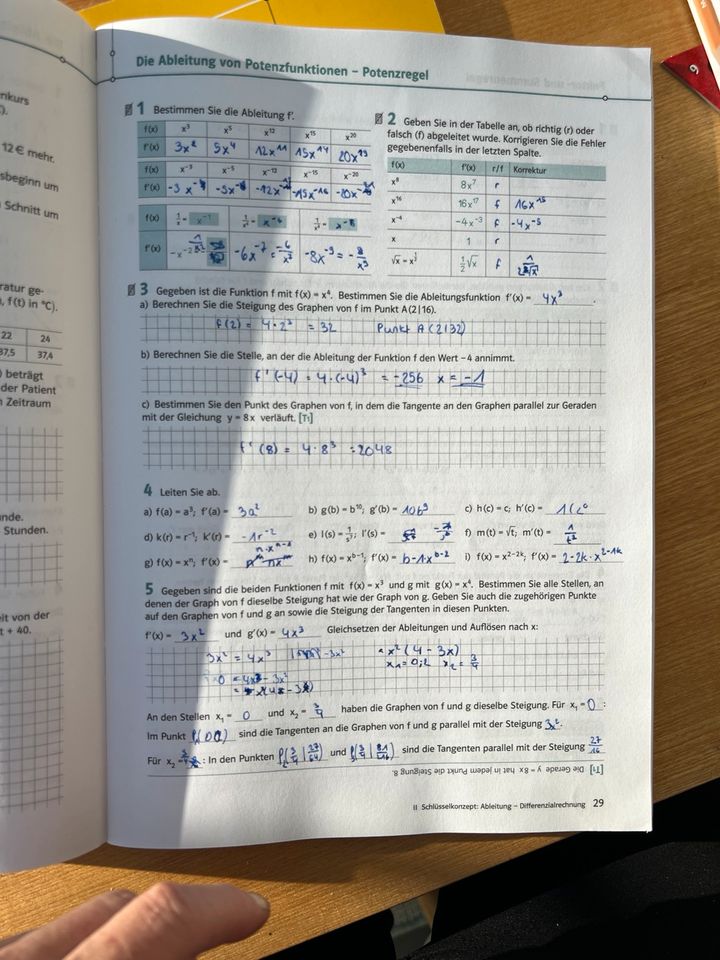 nkurs
).
12 € mehr.
sbeginn um
Schnitt um
ratur ge-
, f(t) in °C).
22 24
37,5 37,4
) beträgt
der Patient
Zeitraum
nde.
Stunden.
eit von der
t + 40.
Die Ableitung von Potenzfunktionen – Potenzregel
1 Bestimmen Sie die Ableitung f'.
f(x) x³ x⁵ x¹² x¹⁵ x²⁰
f'(x) 3x² 5x⁴ 12x¹¹ 15x¹⁴ 20x¹⁹
f(x) x⁻³ x⁻⁵ x⁻¹² x⁻¹⁵ x⁻²⁰
f'(x)
f(x)
f'(x)
2 Geben Sie in der Tabelle an, ob richtig (r) oder
falsch (f) abgeleitet wurde. Korrigieren Sie die Fehler
gegebenenfalls in der letzten Spalte.
f(x) f'(x) r/f Korrektur
x⁸ 8x⁷ r
x¹⁶ 16x¹⁷ f 16x¹⁵
x⁻⁴ −4x⁻³ f −4x⁻⁵
x 1 r
f
3 Gegeben ist die Funktion f mit f(x) = x⁴. Bestimmen Sie die Ableitungsfunktion f'(x) = 4x³ .
a) Berechnen Sie die Steigung des Graphen von f im Punkt A(2|16).
f(2) = 4·2³ = 32 Punkt A (2|32)
b) Berechnen Sie die Stelle, an der die Ableitung der Funktion f den Wert −4 annimmt.
f'(-4) = 4·(-4)³ = -256 x = -1
c) Bestimmen Sie den Punkt des Graphen von f, in dem die Tangente an den Graphen parallel zur Geraden
mit der Gleichung y = 8x verläuft. [T1]
f'(8) = 4·8³ = 2048
4 Leiten Sie ab.
a) f(a) = a³; f'(a) = 3a² b) g(b) = b¹⁰; g'(b) = 10b⁹ c) h(c) = c; h'(c) = 1c⁰
d) k(r) = r⁻¹; k'(r) = -1r⁻² l'(s) = f) m(t) = √t; m'(t) =
g) f(x) = xⁿ; f'(x) = n·xⁿ⁻¹ h) f(x) = xᵇ⁻¹; f'(x) = b-1·xᵇ⁻² i) f(x) = x²⁻²ᵏ; f'(x) = 2-2k·x²⁻¹ᵏ
5 Gegeben sind die beiden Funktionen f mit f(x) = x³ und g mit g(x) = x⁴. Bestimmen Sie alle Stellen, an
denen der Graph von f dieselbe Steigung hat wie der Graph von g. Geben Sie auch die zugehörigen Punkte
auf den Graphen von f und g an sowie die Steigung der Tangenten in diesen Punkten.
f'(x) = 3x² und g'(x) = 4x³ Gleichsetzen der Ableitungen und Auflösen nach x:
3x² = 4x³ -3x² = x²(4 - 3x)
0 = 4x³ - 3x²
An den Stellen x₁ = 0 und x₂ = 3/4 haben die Graphen von f und g dieselbe Steigung. Für x₁ = 0 :
Im Punkt sind die Tangenten an die Graphen von f und g parallel mit der Steigung 3x².
Für x₂ : In den Punkten P(3/4|27/64) und sind die Tangenten parallel mit der Steigung 27/16
[T1] Die Gerade y = 8x hat in jedem Punkt die Steigung 8.
II Schlüsselkonzept: Ableitung – Differenzialrechnung 29